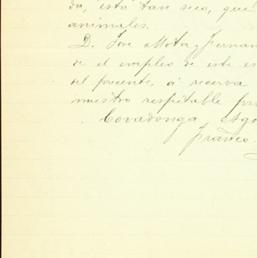 da, está tan seco, que
animales.
D. José Mota y Fernan
de el empleo de este en
del presente, á reserva
nuestro respetable
Covadonga, Ago
Franco.